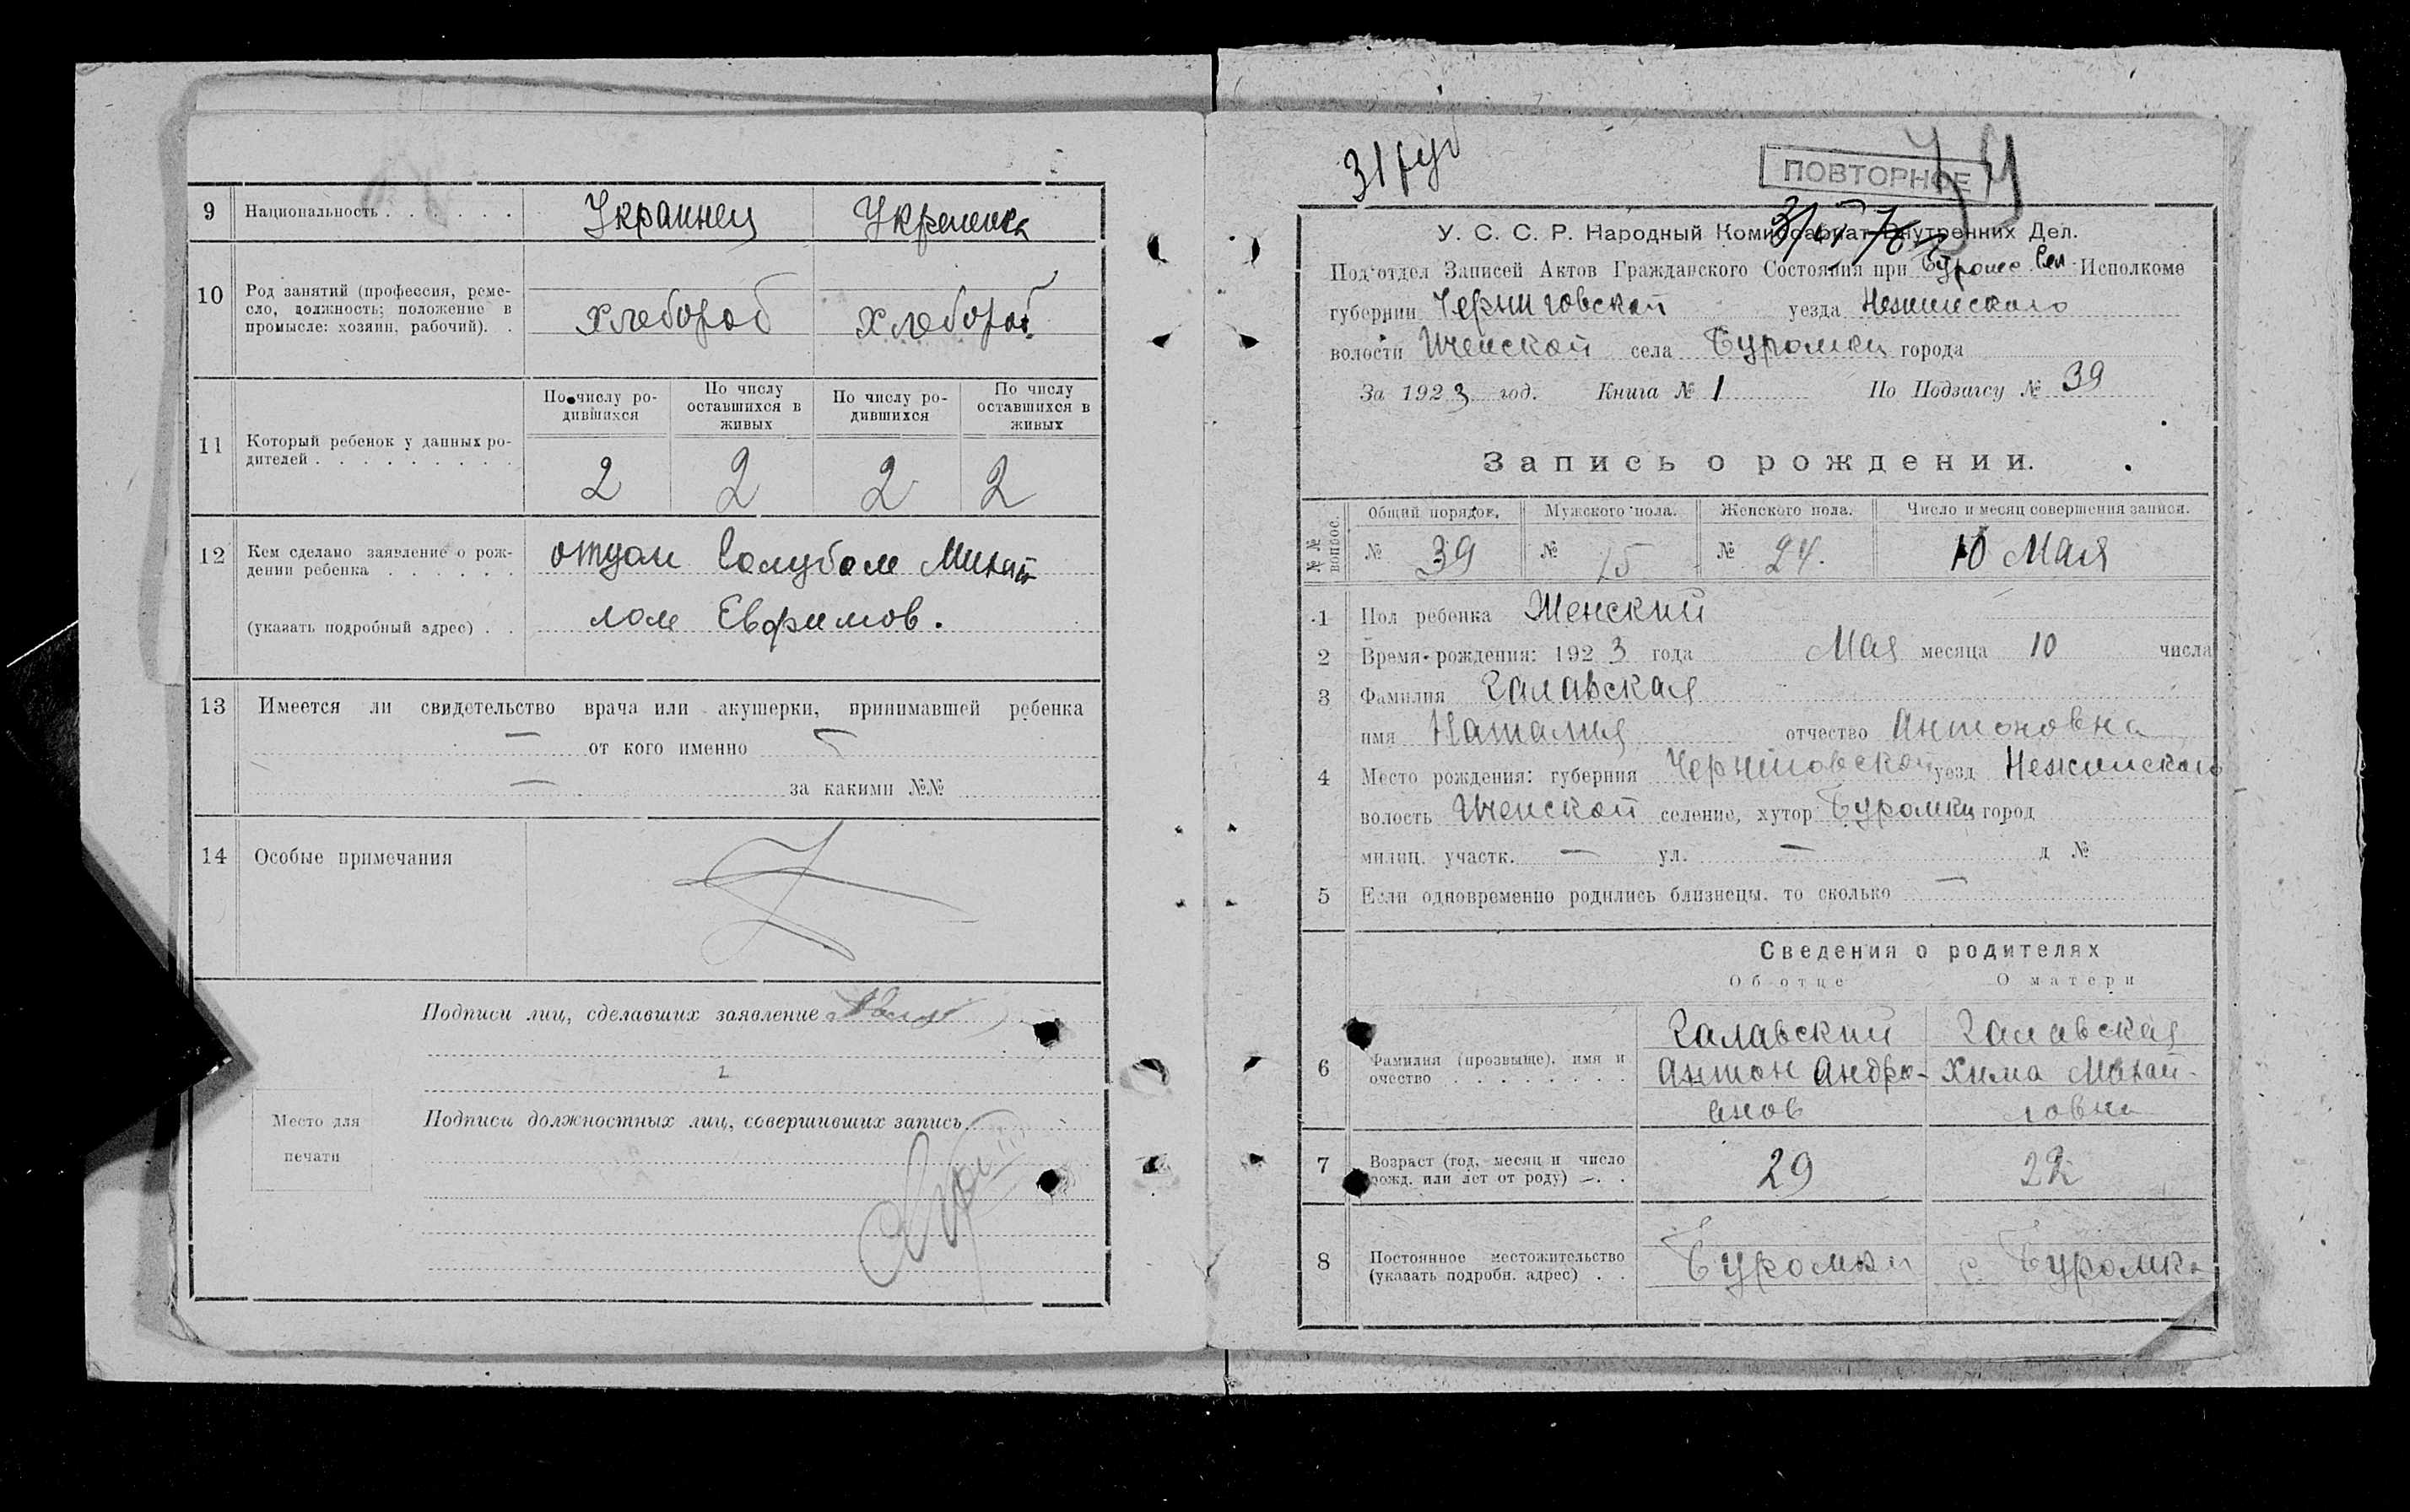 9 Национальность Украинец Украинка
10 Род занятий (профессия, реме-
сло, должность; положение в
промысле: хозяин, рабочий). хлебороб хлебороб
По числу ро-
дившихся
По числу
оставшихся в
живых
По числу ро-
дившихся
По числу
оставшихся в
живых
11 Который ребенок у данных ро-
дителей 2 2 2 2
12 Кем сделано заявление о рож-
дении ребенка отцом Голубом Михай
(указать подробный адрес) лом Евфимов.
13 Имеется ли свидетельство врача или акушерки, принимавшей ребенка
— от кого именно —
— за какими №№
14 Особые примечания
Подписи лиц, сделавших заявление
Место для
печати
Подписи должностных лиц, совершивших запись
31
ПОВТОРНОЕ
У. С. С. Р. Народный Комиссариат Внутренних Дел.
Под'отдел Записей Актов Гражданского Состояния при Сел Исполкоме
губернии Черниговской уезда Нежинского
волости Иченской села Буромки города
За 1923 год. Книга № 1 По Подзагсу № 39
Запись о рождении.
№№ вопрос.
Общий порядок. Мужского пола. Женского пола. Число и месяц совершения записи.
№ 39 № 15 № 24. 10 Мая
1 Пол ребенка Женский
2 Время рождения: 1923 года Мая месяца 10 числа
3 Фамилия Галавская
имя Наталия отчество Антоновна
4 Место рождения: губерния Черниговской уезд Нежинского
волость Иченской селение, хутор Буромки город
милиц. участк. — ул. — д №
5 Если одновременно родились близнецы, то сколько —
Сведения о родителях
Об отце О матери
6 Фамилия (прозвыще), имя и
очество
Галавский
Антон Андро-
Галавская
Хима Михай-
ловна
7 Возраст (год, месяц и число
рожд. или лет от роду) 29 22
8 Постоянное местожительство
(указать подробн. адрес) Буромки с. Буромка